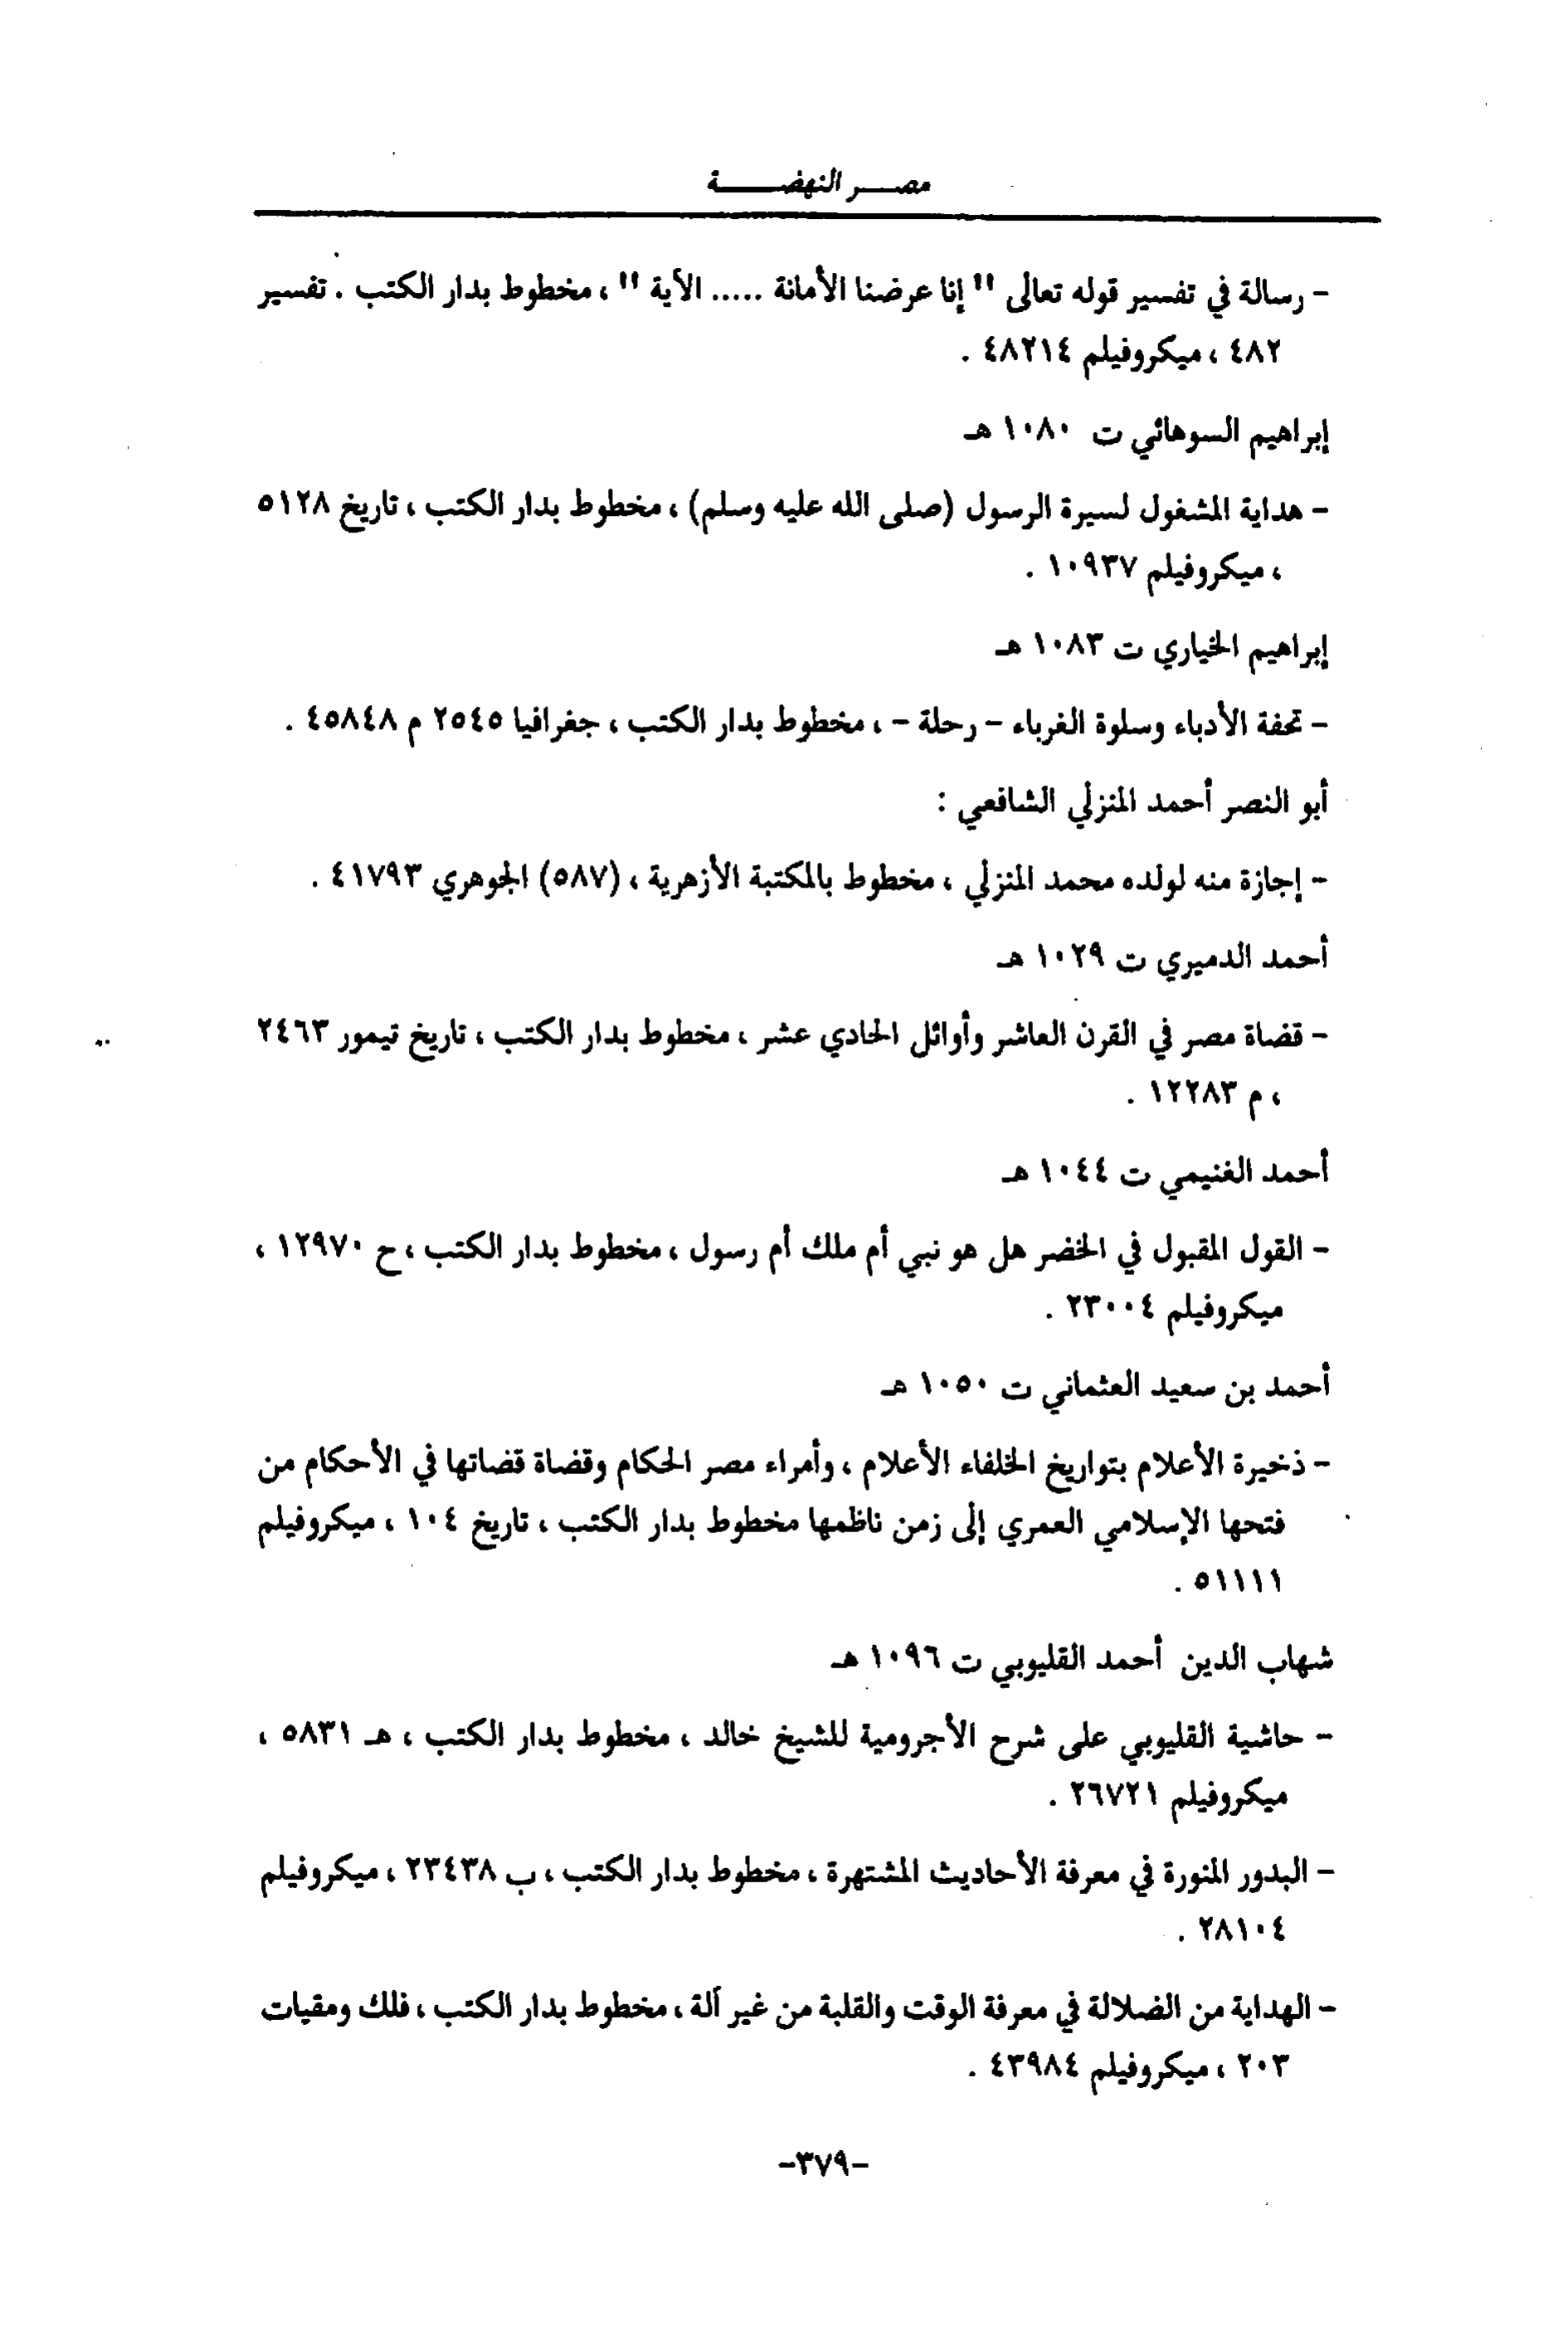 مصـــر النهضـــــة
- رسالة في تفسير قوله تعالى " إنا عرضنا الأمانة ..... الآية " ، مخطوط بدار الكتب . تفسير
٤٨٢ ، ميكروفيلم ٤٨٢١٤ .
إبراهيم السوهائي ت ١٠٨٠ هـ
- هداية المشغول لسيرة الرسول (صلى الله عليه وسلم) ، مخطوط بدار الكتب ، تاريخ ٥١٢٨
، ميكروفيلم ١٠٩٣٧ .
إبراهيم الخياري ت ١٠٨٣ هـ
- تحفة الأدباء وسلوة الغرباء - رحلة - ، مخطوط بدار الكتب ، جغرافيا ٢٥٤٥ م ٤٥٨٤٨ .
أبو النصر أحمد المنزلي الشافعي :
- إجازة منه لولده محمد المنزلي ، مخطوط بالمكتبة الأزهرية ، (٥٨٧) الجوهري ٤١٧٩٣ .
أحمد الدميري ت ١٠٢٩ هـ
- قضاة مصر في القرن العاشر وأوائل الحادي عشر ، مخطوط بدار الكتب ، تاريخ تيمور ٢٤٦٣
، م ١٢٢٨٣ .
أحمد الغنيمي ت ١٠٤٤ هـ
- القول المقبول في الخضر هل هو نبي أم ملك أم رسول ، مخطوط بدار الكتب ، ح ١٢٩٧٠ ،
ميكروفيلم ٢٣٠٠٤ .
أحمد بن سعيد العثماني ت ١٠٥٠ هـ
- ذخيرة الأعلام بتواريخ الخلفاء الأعلام ، وأمراء مصر الحكام وقضاة قضاتها في الأحكام من
فتحها الإسلامي العمري إلى زمن ناظمها مخطوط بدار الكتب ، تاريخ ١٠٤ ، ميكروفيلم
٥١١١١ .
شهاب الدين أحمد القليوبي ت ١٠٩٦ هـ
- حاشية القليوبي على شرح الأجرومية للشيخ خالد ، مخطوط بدار الكتب ، هـ ٥٨٣١ ،
ميكروفيلم ٢٦٧٢١ .
- البدور المنورة في معرفة الأحاديث المشتهرة ، مخطوط بدار الكتب ، ب ٢٣٤٣٨ ، ميكروفيلم
٢٨١٠٤ .
- الهداية من الضلالة في معرفة الوقت والقلبة من غير آلة ، مخطوط بدار الكتب ، فلك ومقيات
٢٠٣ ، ميكروفيلم ٤٣٩٨٤ .
-٣٧٩-